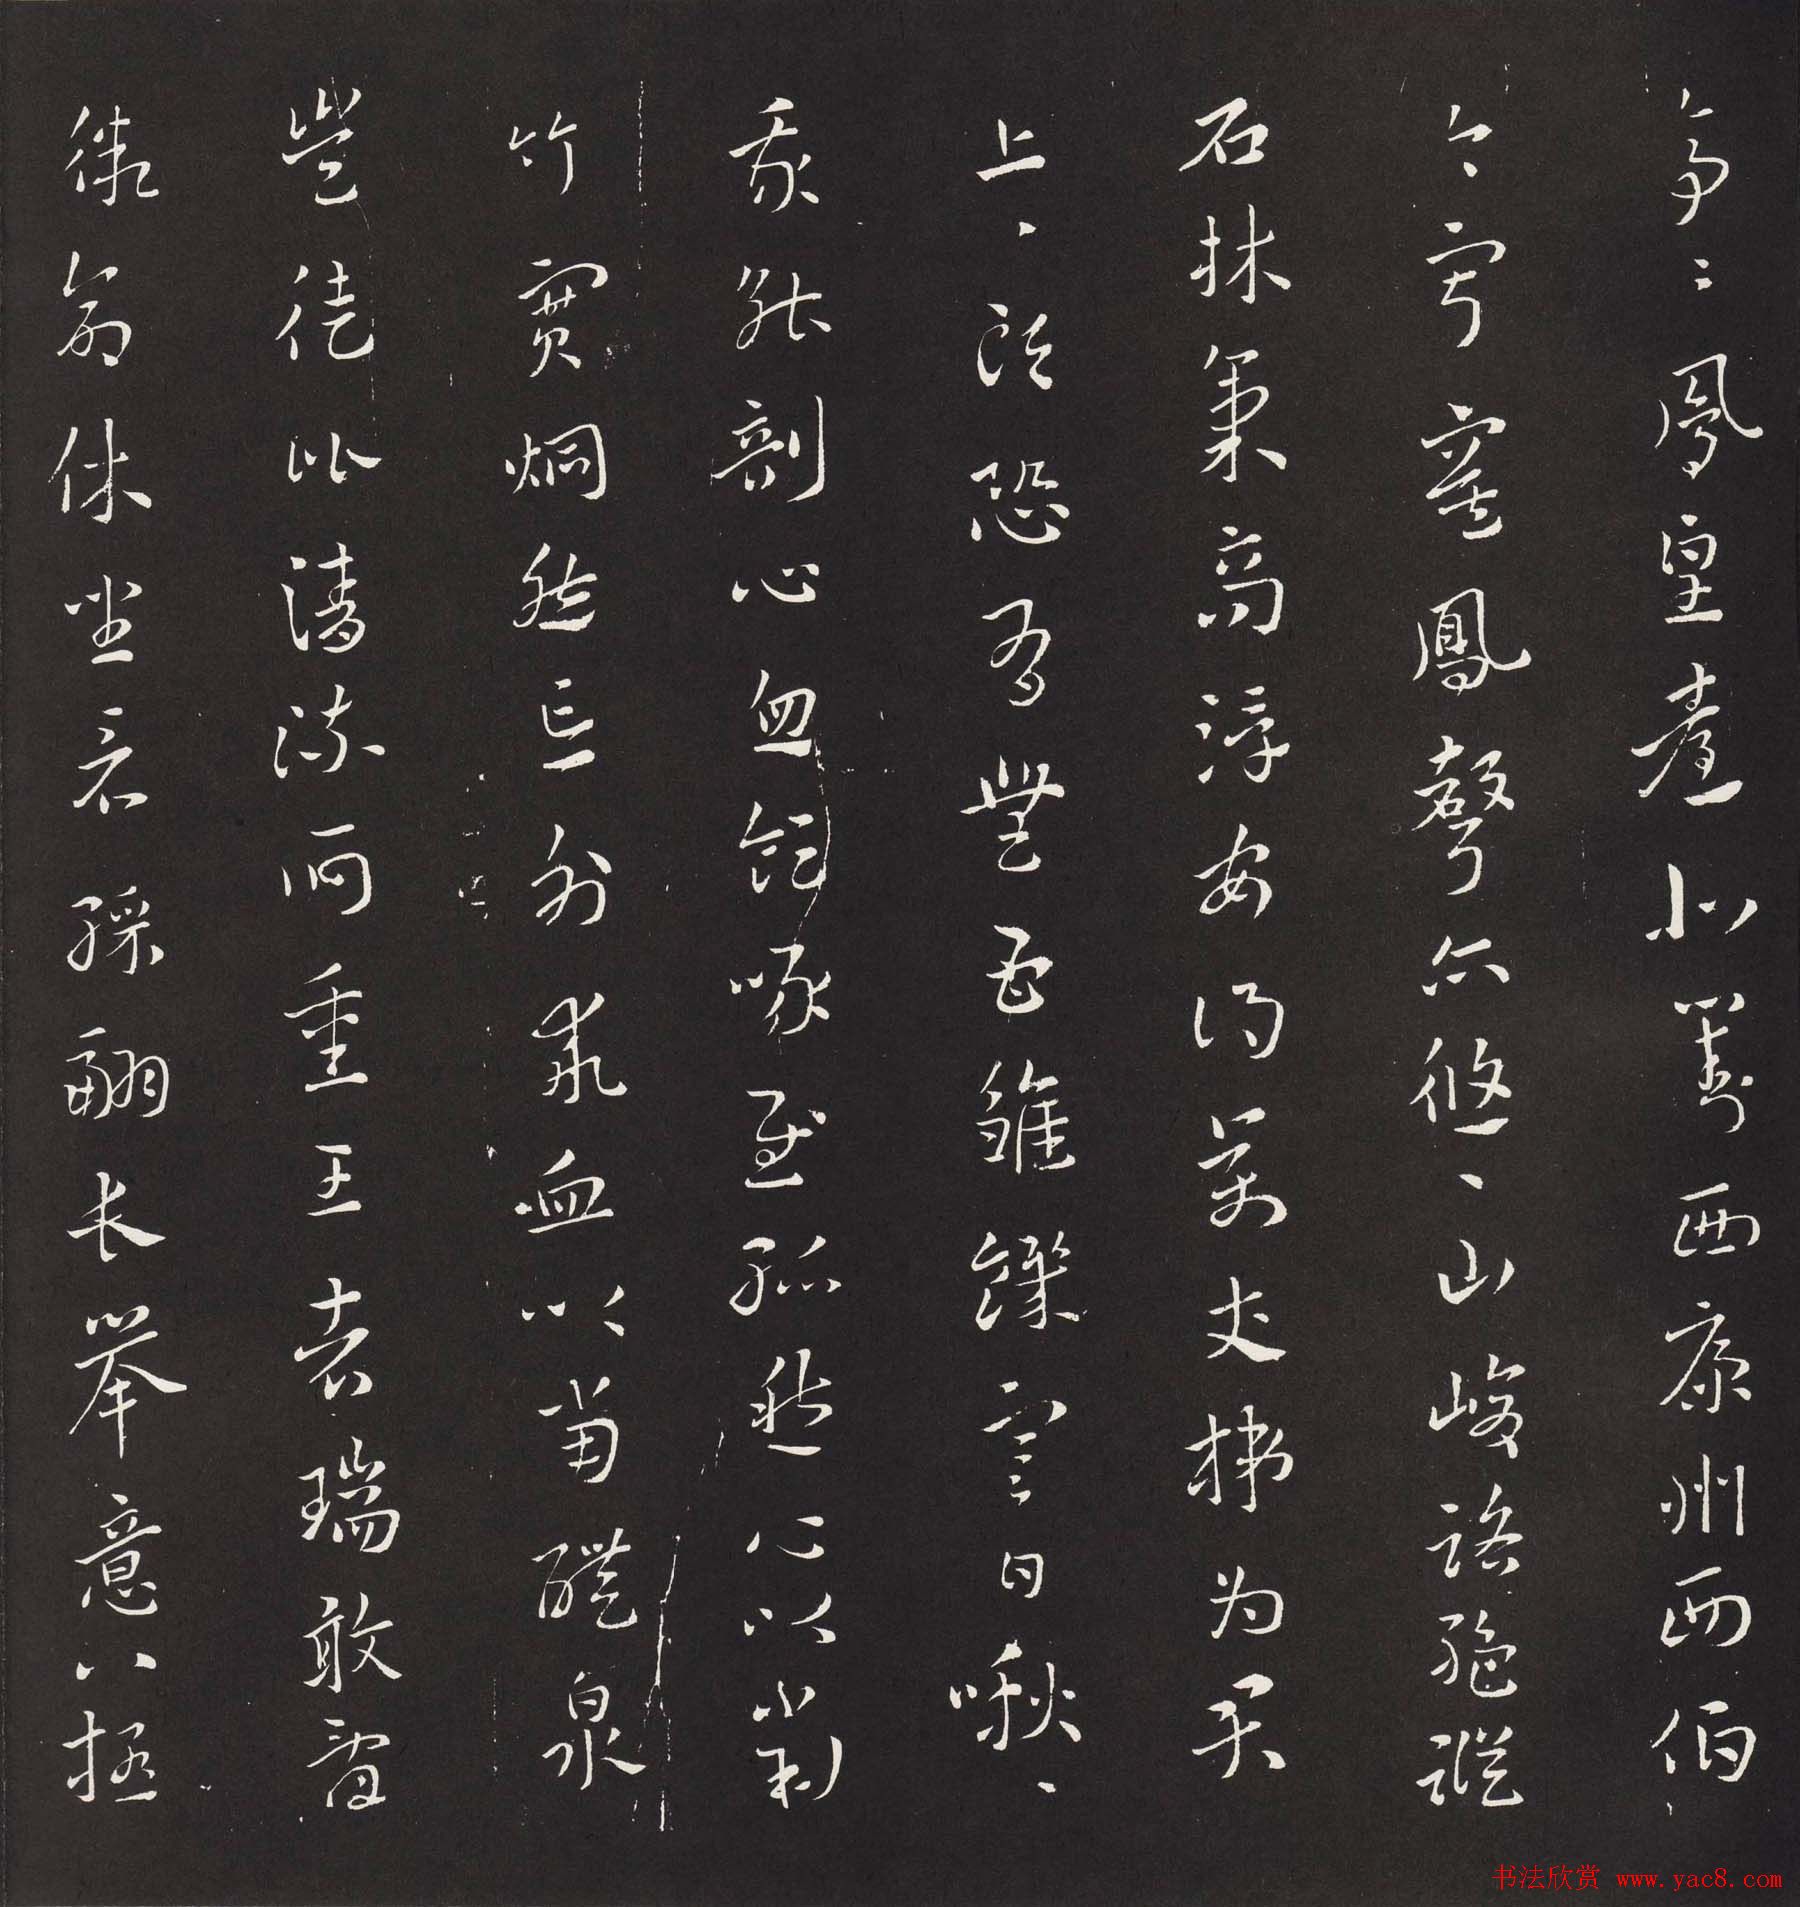 亭〻鳳皇臺北對西康州西伯
今寂寞鳳聲亦悠〻山峻路絕蹤
石林氣高浮安得萬丈梯為君
上〻頭恐有無母雛饑寒日啾〻
我能剖心血飲啄慰孤愁心以當
竹實炯然忘外求血以當醴泉
豈徒比清流所重王者瑞敢辭
微命休坐看綵翮長舉意八極
书法欣赏 www.yac8.com